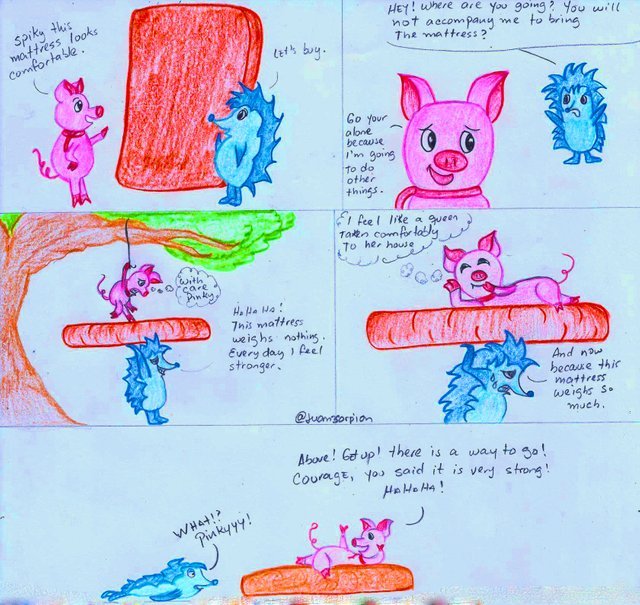 Spiky this
mattress looks
comfortable.
Let's buy.
HEY! Where are you going? You will
not accompany me to bring
The mattress?
Go your
alone
because
I'm going
to do
other
things.
With
care
Pinky
HaHaHa!
This mattress
weighs nothing.
Every day I feel
stronger.
I feel like a queen
Taken comfortably
To her house
And now
because this
mattress
weighs so
much.
@Juanscorpion
Above! Get up! there is a way to go!
Courage, you said it is very strong!
HaHaHa!
WHAT!?
Pinkyyy!